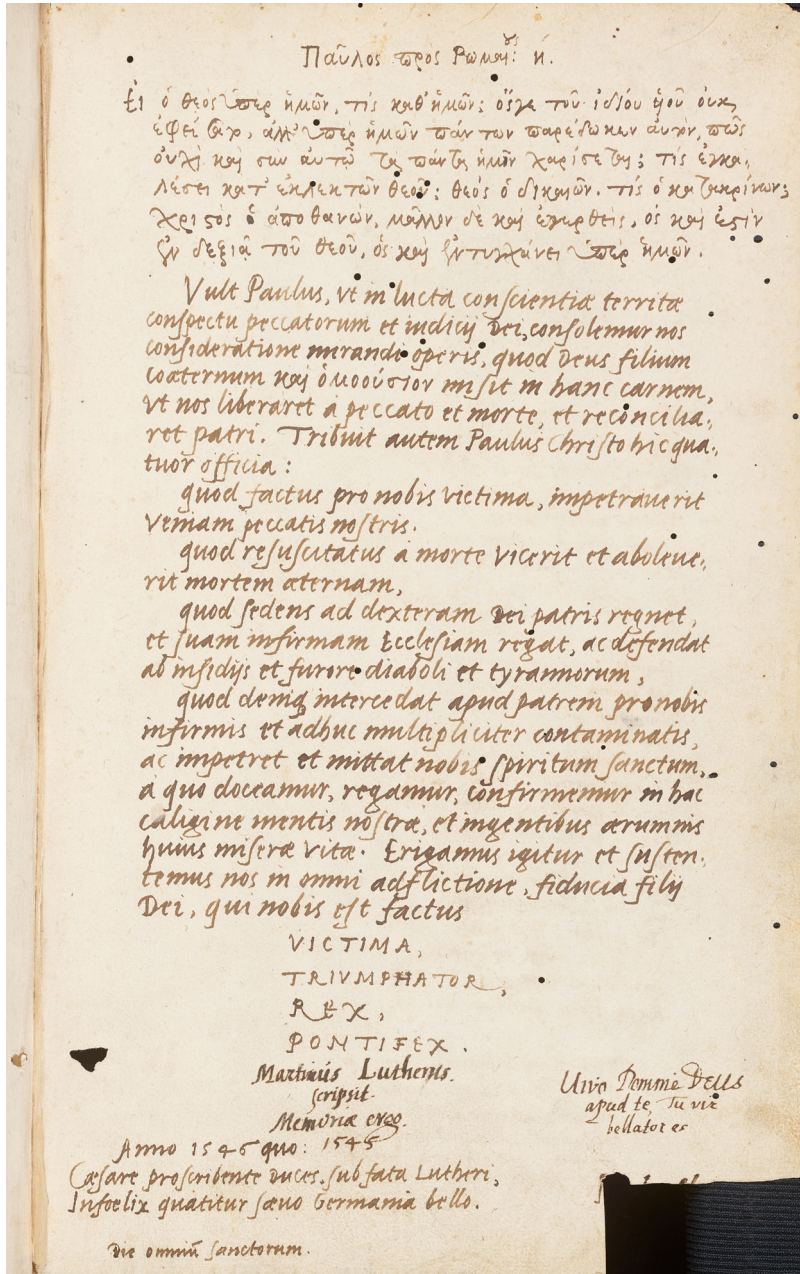 Παῦλος πρὸς Ρωμαί: ή.
Εἰ ὁ θεὸς ὑπὲρ ἡμῶν, τίς καθ' ἡμῶν; ὅσγε τοῦ ἰδίου ὑιοῦ ὀυκ
ἐφείσατο, ἀλλ' ὑπὲρ ἡμῶν πάντων παρέδωκεν ἀυτὸν, πῶς
ὀυχὶ καὶ συν ἀυτῷ τὰ πάντα ἡμῖν χαρίσεται; τίς ἐγκα,
λέσει κατ' ἐκλεκτῶν θεοῦ; θεός ὁ δικαιῶν. τίς ὁ κατακρίνων;
χριστὸς ὁ ἀποθανών, μᾶλλον δὲ καὶ ἐγερθεὶς, ὁς καὶ ἐστὶν
ἐν δεξιᾷ τοῦ θεοῦ, ὁς καὶ ἐντυγχάνει ὑπὲρ ἡμῶν.
Vult Paulus, vt in lucta conscientiæ territæ
conspectu peccatorum et iudicij Dei, consolemur nos
consideratione mirandi operis, quod Deus filium
coæternum καὶ ὁμοούσιον misit in hanc carnem,
vt nos liberaret a peccato et morte, et reconcilia,
ret patri. Tribuit autem Paulus Christo hic qua,
tuor officia:
quod factus pro nobis victima, impetrauerit
veniam peccatis nostris.
quod resuscitatus a morte vicerit et aboleue,
rit mortem æternam,
quod sedens ad dexteram Dei patris regnet,
et suam infirmam Ecclesiam regat, ac defendat
ab insidijs et furore diaboli et tyrannorum,
quod deniq intercedat apud patrem pro nobis
infirmis et adhuc multipliciter contaminatis,
ac impetret et mittat nobis spiritum sanctum,
a quo doceamur, regamur, confirmemur in hac
caligine mentis nostræ, et ingentibus ærumnis
huius miseræ vitæ. Erigamus igitur et susten,
temus nos in omni adflictione, fiducia filij
Dei, qui nobis est factus
VICTIMA,
TRIVMPHATOR,
REX,
PONTIFEX.
Martinus Lutherus.
scripsit.
Memoriæ ergo.
1545
Vivo Domine DEUS
apud te, Tu vir
bellator es
Anno 1546 quo:
Cæsare proscribente duces, sub fata Lutheri,
Infoelix quatitur sæuo Germania bello.
Die omniū sanctorum.